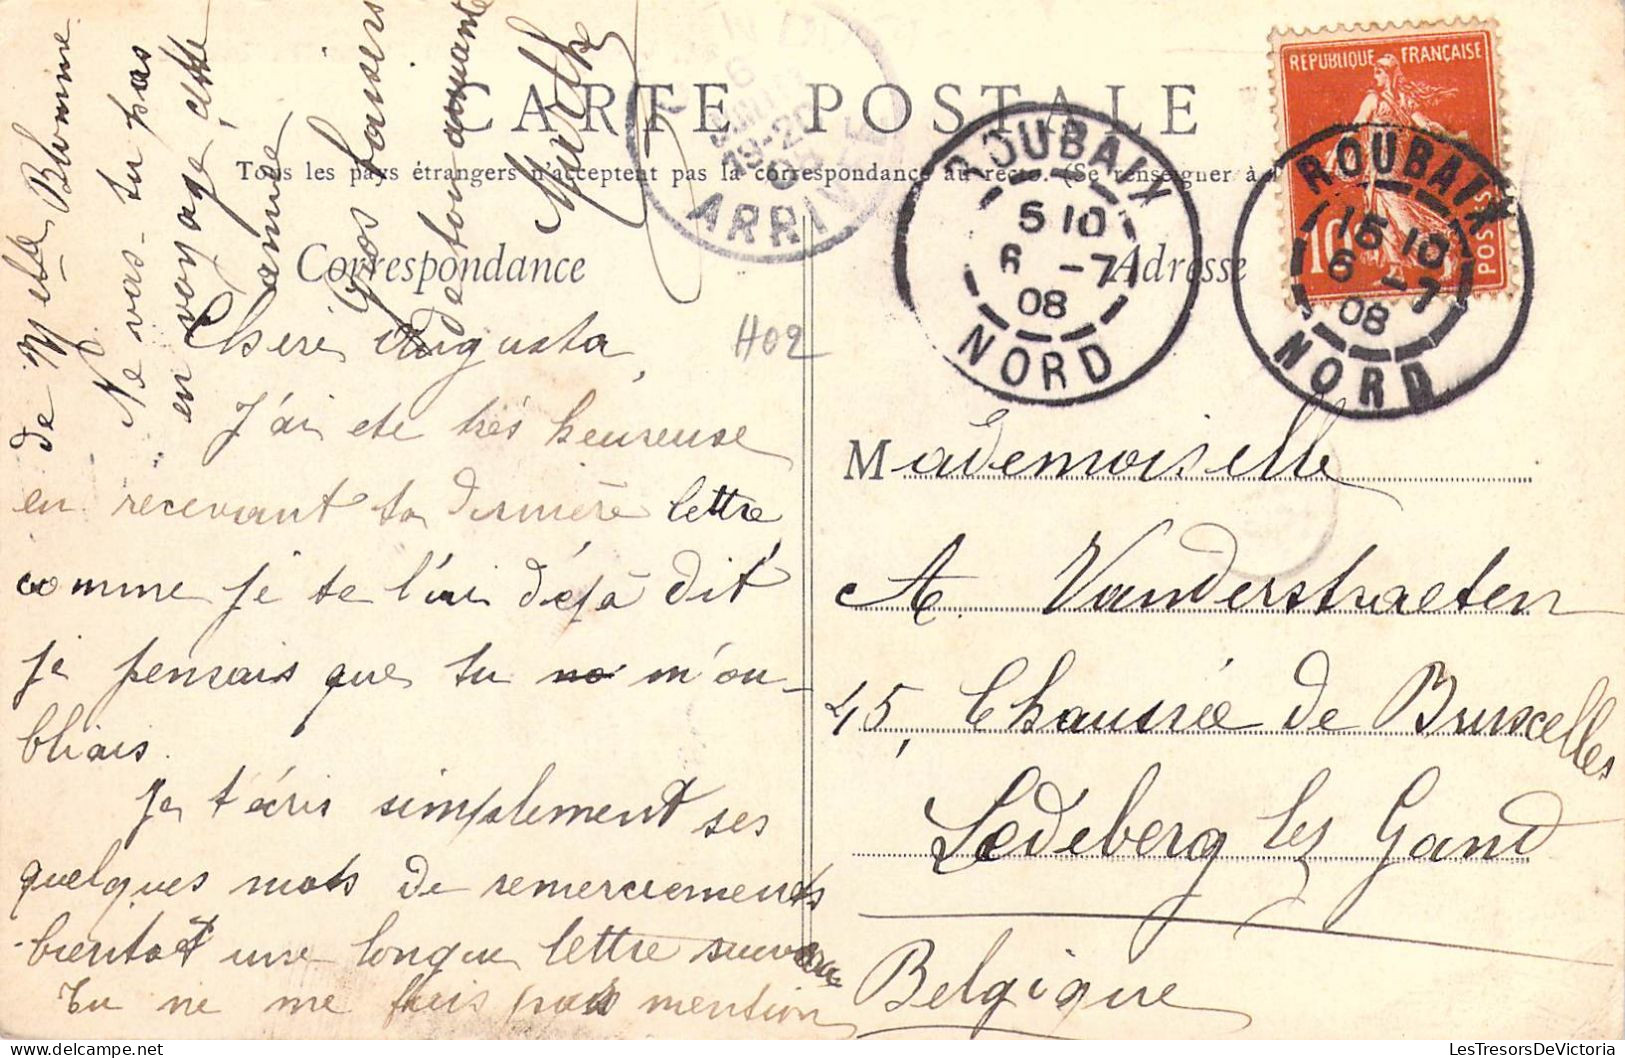 CARTE POSTALE
Tous les pays étrangers n'acceptent pas la correspondance au recto. (Se renseigner à l
Correspondance
Adresse
REPUBLIQUE FRANÇAISE
10
POSTES
ROUBAIX
5 10
6 - 7
08
NORD
ROUBAIX
15 10
6 - 7
08
NORD
ARRIV
H02
Cheri Augusta,
J'ai ete très heureuse
en recevant ta dernière lettre
comme je te l'ai déjà dit
je pensais que tu m'ou-
bliais.
Je t'écris simplement ses
quelques mots de remerciements
bientot une longue lettre suivra
Tu ne me fais pas mention
de Melle Blomme.
Ne vas-tu pas
en voyage cette
année
Gros baisers
de ton aimante
Marthe
Mademoiselle
A. Vanderstraeten
45, Chaussée de Bruxcelles
Ledeberg lez Gand
Belgique
LesTresorsDeVictoria